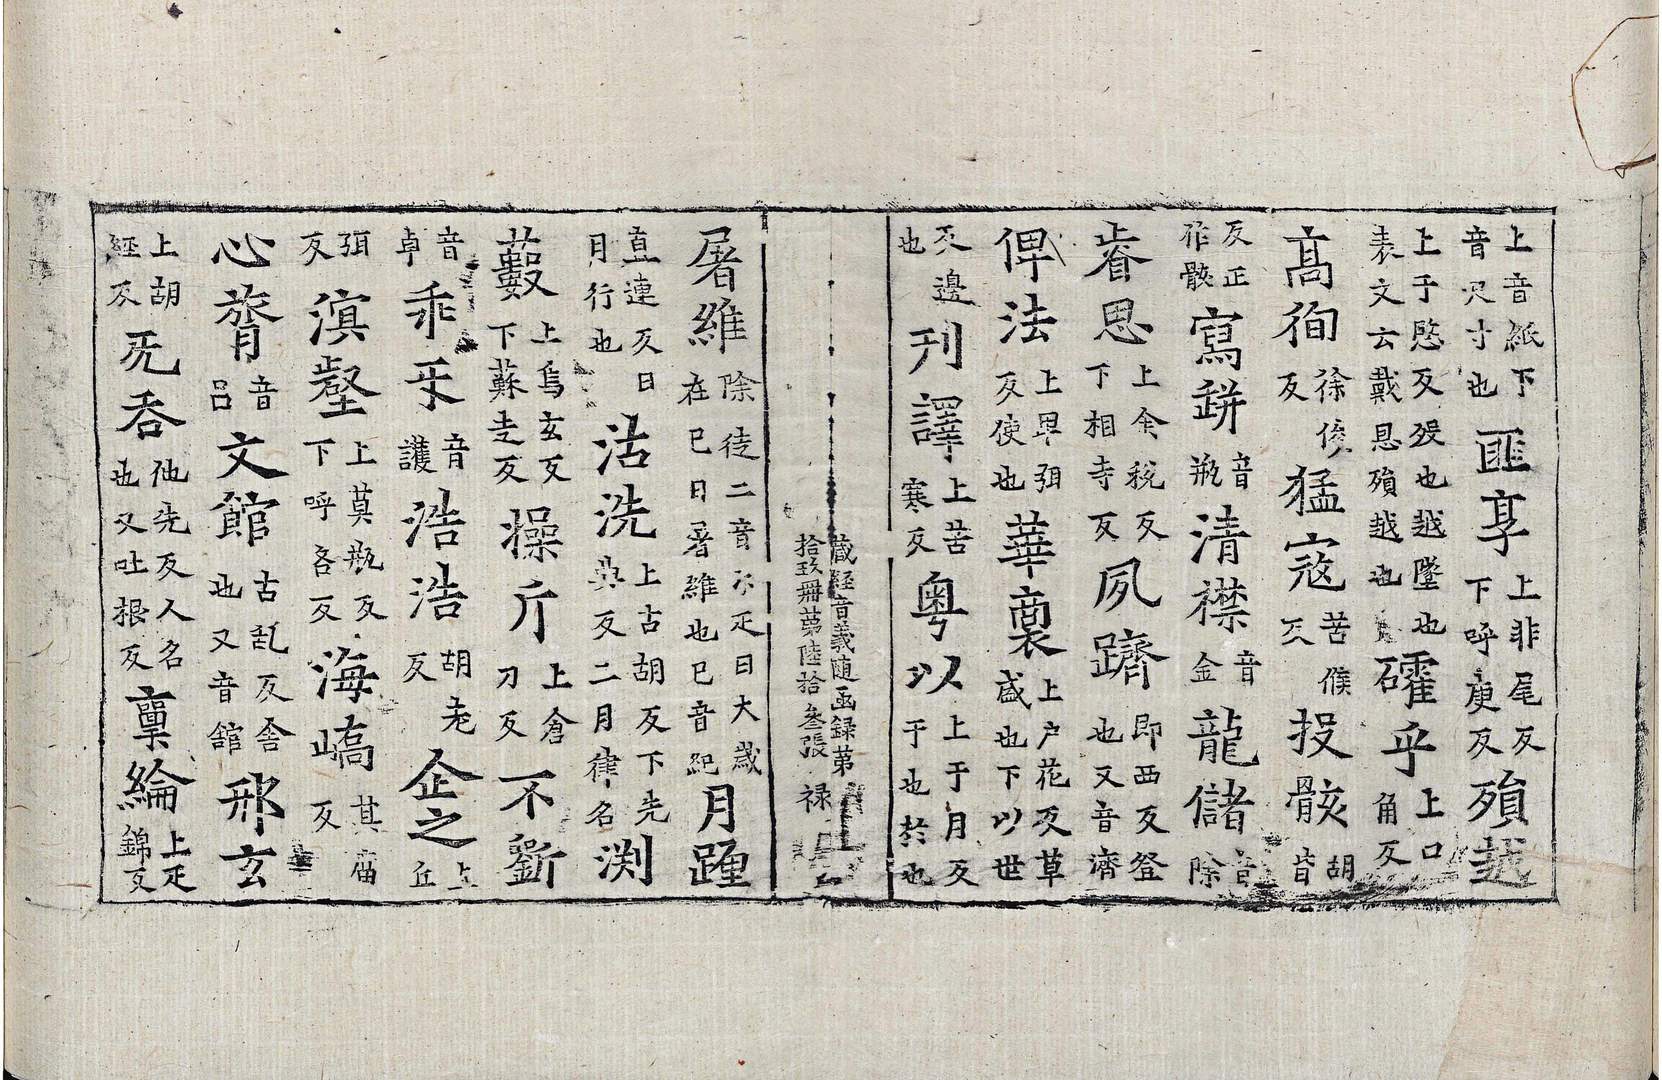 上音紙下音尺寸也匪享上非尾反下呼庚反殞越
上于愍反殁也越墜也表文云戴恩殞越也礭乎上口角反
高徇徐俊反猛寇苦候反投骸胡皆
反正作骸寫缾音瓶清襟音金龍儲音除
睿思上余税反下相寺反夙躋即西反登也又音濟
俾法上卑弭反使也華裏上户花反草盛也下以世
反邊也刋譯上苦寒反粤以上于月反于也於也
藏経音義随函録苐拾玖冊苐陸拾叁張 禄
屠維除徒二音尔疋曰大歳在巳曰屠維也巳音紀月躔
直連反日月行也沽洗上古胡反下先典反二月律名渕
藪上烏玄反下蘇走反操斤上倉刀反不斵
音卓乖牙音護浩浩胡老反企之上丘
弭反溟壑上莫瓶反下呼各反海嶠其庿反
心膂音吕文館古乱反舎也又音舘邢玄
上胡經反旡吞他先反人名也又吐根反稟綸上疋錦反